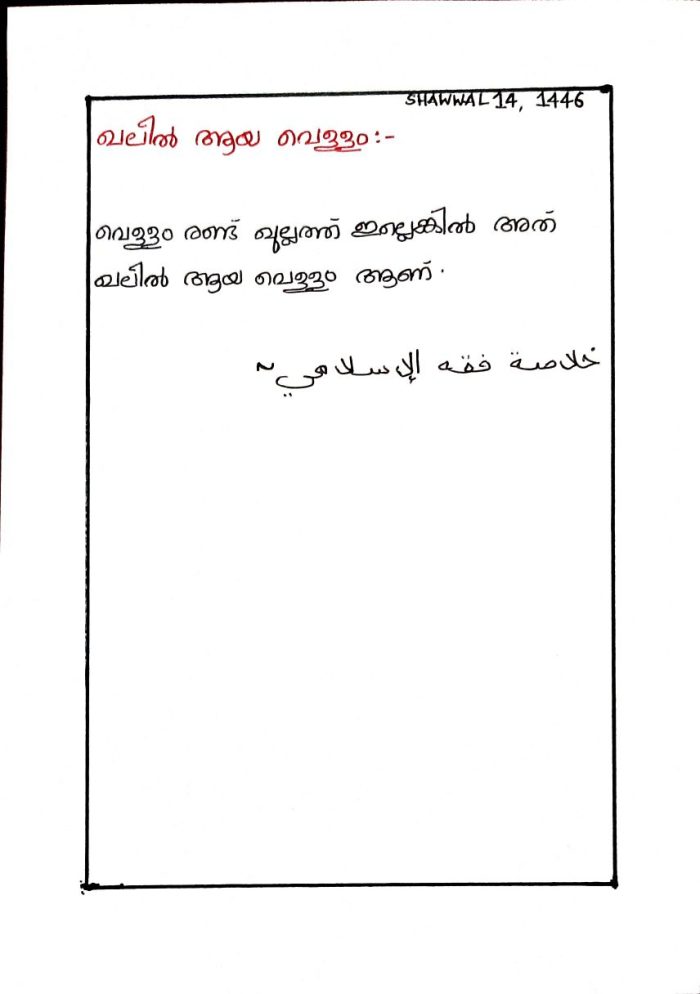 SHAWWAL 14, 1446
ഖലിൽ ആയ വെള്ളം:-
വെള്ളം രണ്ട് ഖുല്ലത്ത് ഇല്ലെങ്കിൽ അത്
ഖലിൽ ആയ വെള്ളം ആണ്.
خلاصة فقه الإسلامي~